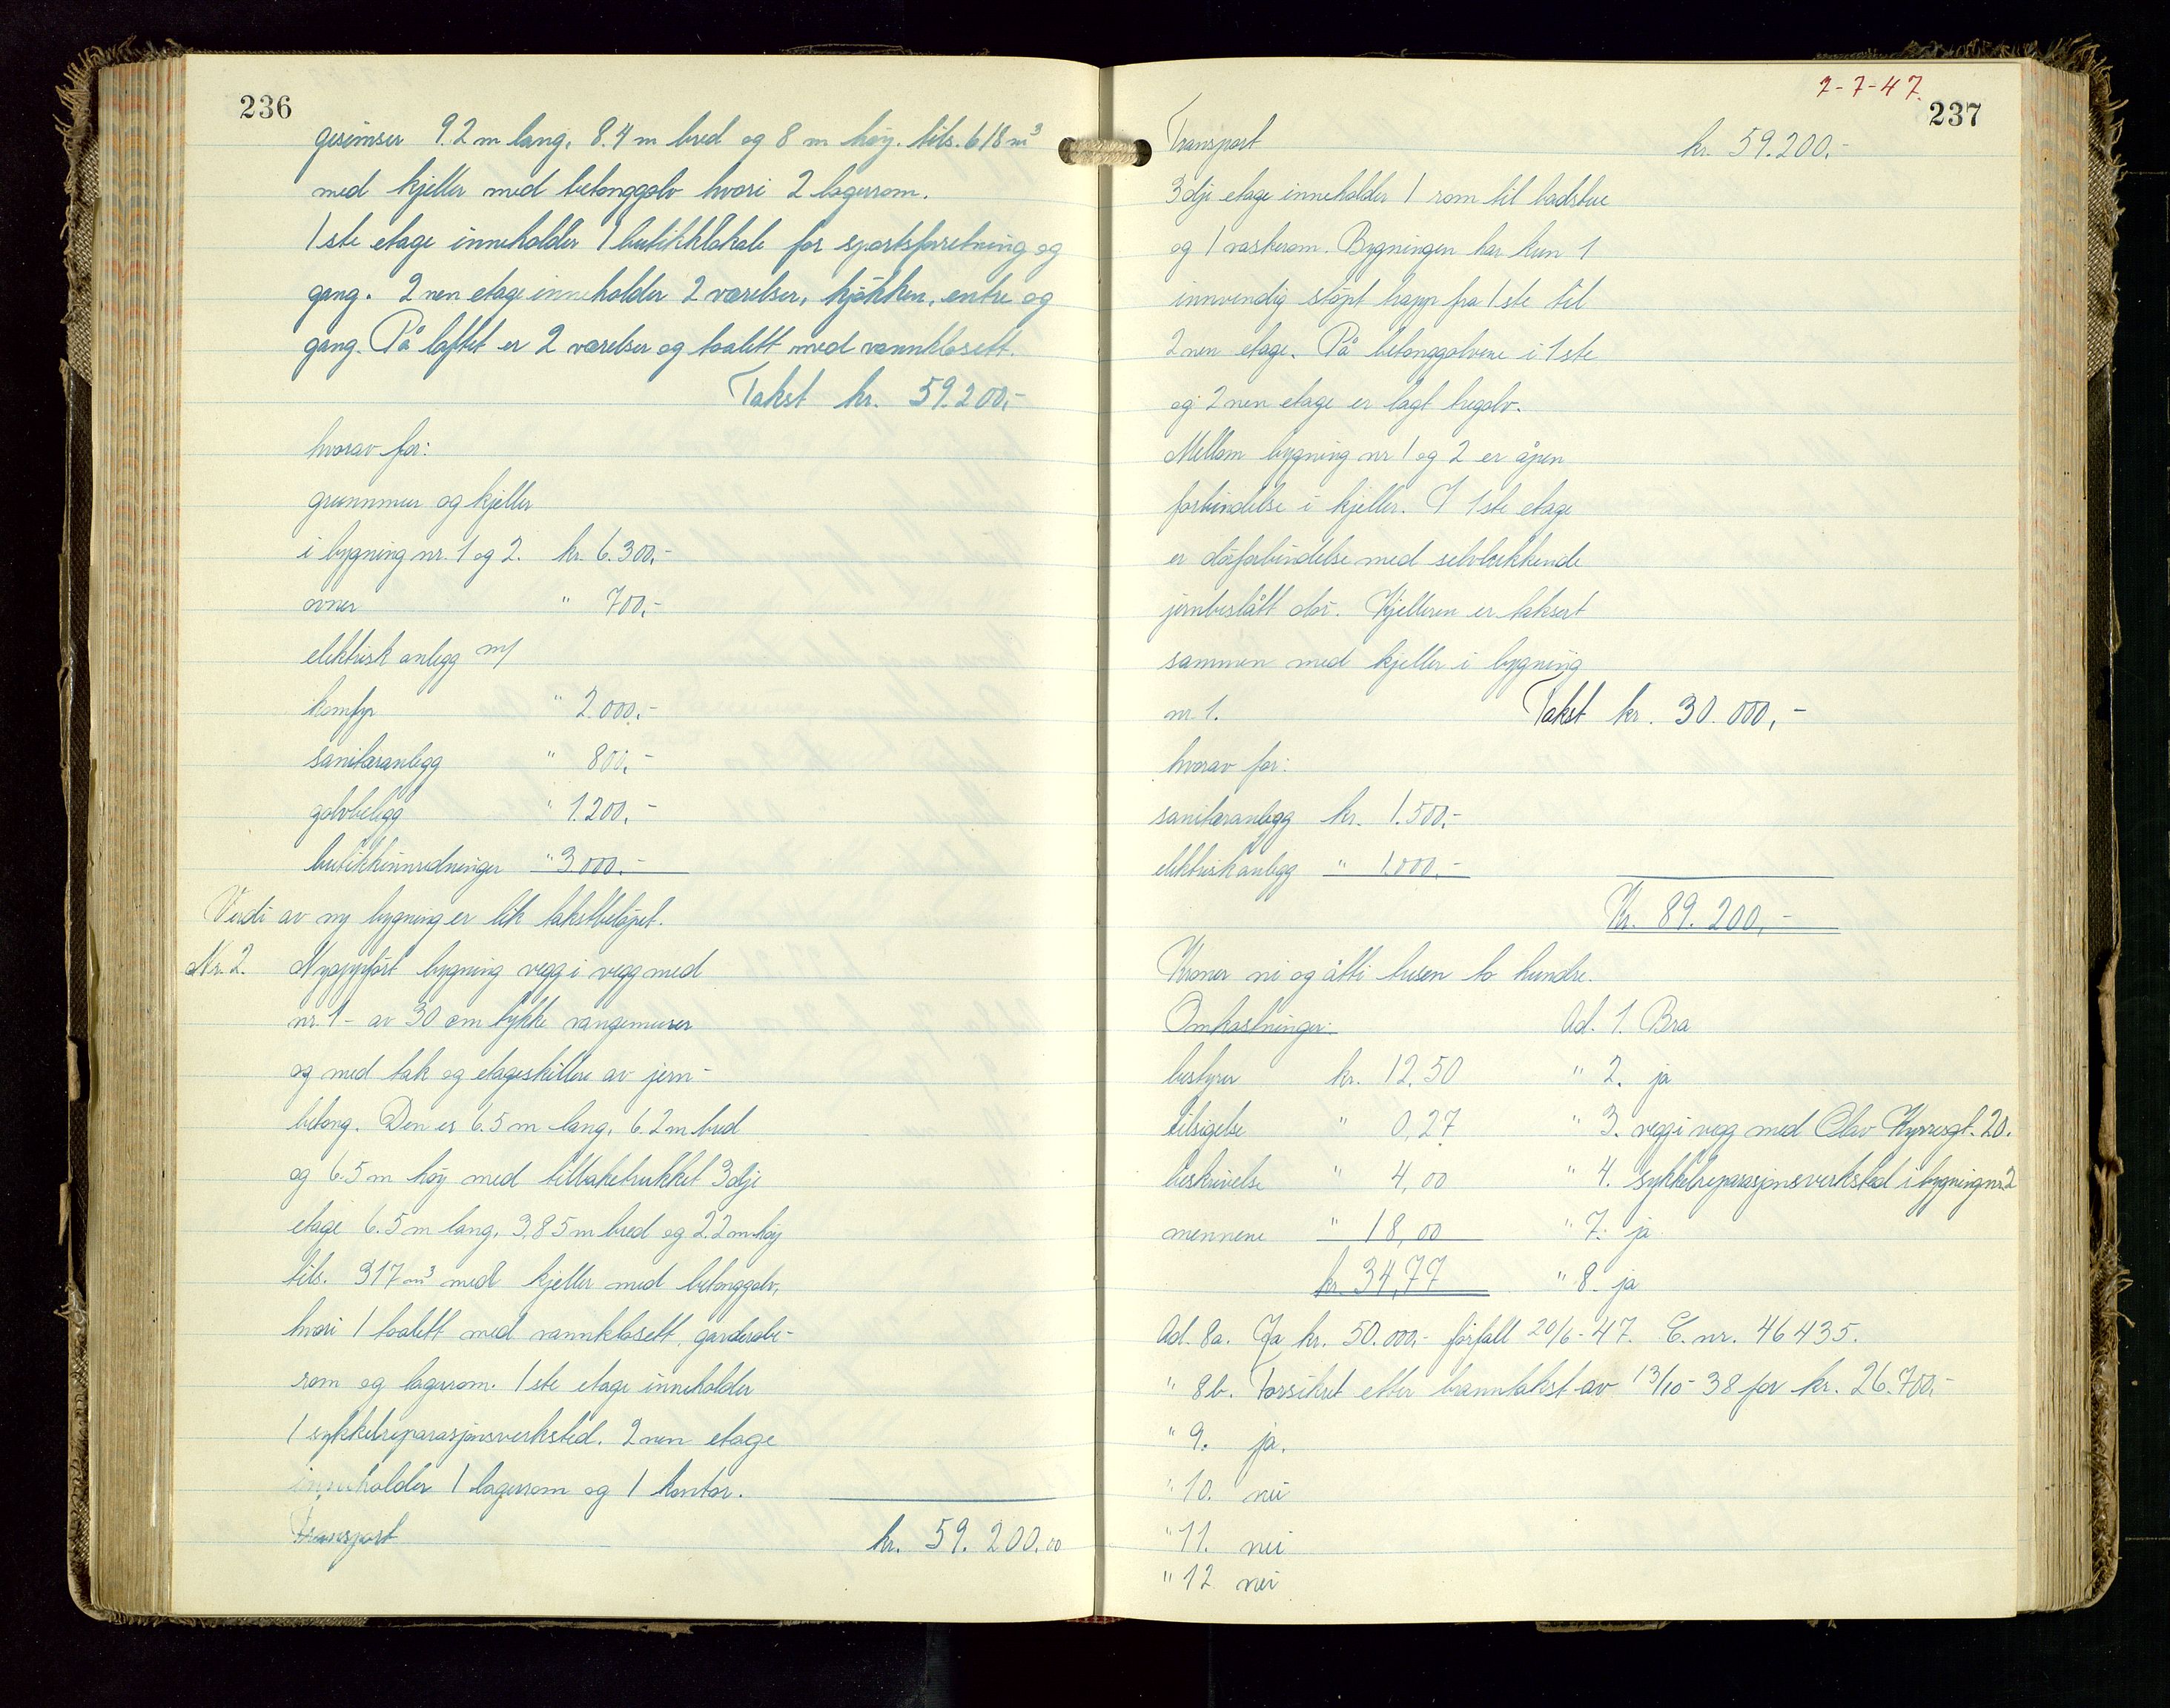 236
gesimser 9.2 m lang, 8.4 m bred og 8 m høy. tils. 618 m³
med kjeller med betonggolv hvori 2 lagerrom.
1ste etage inneholder 1 butikklokale for sportsforetning og
gang. 2nen etage inneholder 2 værelser, kjøkken, entre og
gang. På loftet er 2 værelser og toalett med vannklosett.
Takst kr. 59.200,-
hvorav for:
grunnmur og kjeller
i bygning nr. 1 og 2. kr. 6.300,-
ovner " 700,-
elektrisk anlegg m/
komfyr " 2.000,-
sanitæranlegg " 800,-
golvbelegg " 1.200,-
butikkinnredninger " 3000,-
Verdi av ny bygning er lik takstbeløpet.
Nr. 2. Nyoppført bygning vegg i vegg med
nr. 1 - av 30 cm tykke vangemurer
og med tak og etageskillere av jern-
betong. Den er 6.5 m lang, 6.2 m bred
og 6.5 m høy med tilbaketrukket 3dje
etage 6.5 m lang, 3.85 m bred og 2.2 m høy
tils. 317 m³ med kjeller med betonggolv,
hvori 1 toalett med vannklosett, garderobe-
rom og lagerrom. 1ste etage inneholder
1 sykkelreparasjonsverksted. 2nen etage
inneholder 1 lagerrom og 1 kontor.
Transport kr. 59.200,00
2-7-47.
237
Transport kr. 59.200,-
3dje etage inneholder 1 rom til badstue
og 1 vaskerom. Bygningen har kun 1
innvendig støpt trapp fra 1ste til
2nen etage. På betonggolvene i 1ste
og 2nen etage er lagt tregolv.
Mellom bygning nr 1 og 2 er åpen
forbindelse i kjeller. I 1ste etage
er dørforbindelse med selvlukkende
jernbeslått dør. Kjelleren er taksert
sammen med kjeller i bygning
nr. 1. Takst kr. 30.000,-
hvorav for:
sanitæranlegg kr. 1.500,-
elektrisk anlegg " 1.000,-
Kr. 89.200,-
Kroner ni og åtti tusen to hundre.
Omkostninger: Ad. 1. Bra
bestyrer kr. 12.50 " 2. ja
tilsigelse " 0,27 " 3. vegg i vegg med Olav Kyrresgt. 20.
beskrivelse " 4,00 " 4. sykkelreparasjonsverksted i bygning nr 2
mennene " 18,00 " 7. ja
kr. 34,77 " 8. ja
Ad. 8a. Ja kr. 50.000,- forfall 20/6-47. C. nr. 46435.
" 8b. Forsikret etter branntakst av 13/10-38 for kr. 26.700,-
" 9. ja.
" 10. nei
" 11. nei
" 12 nei